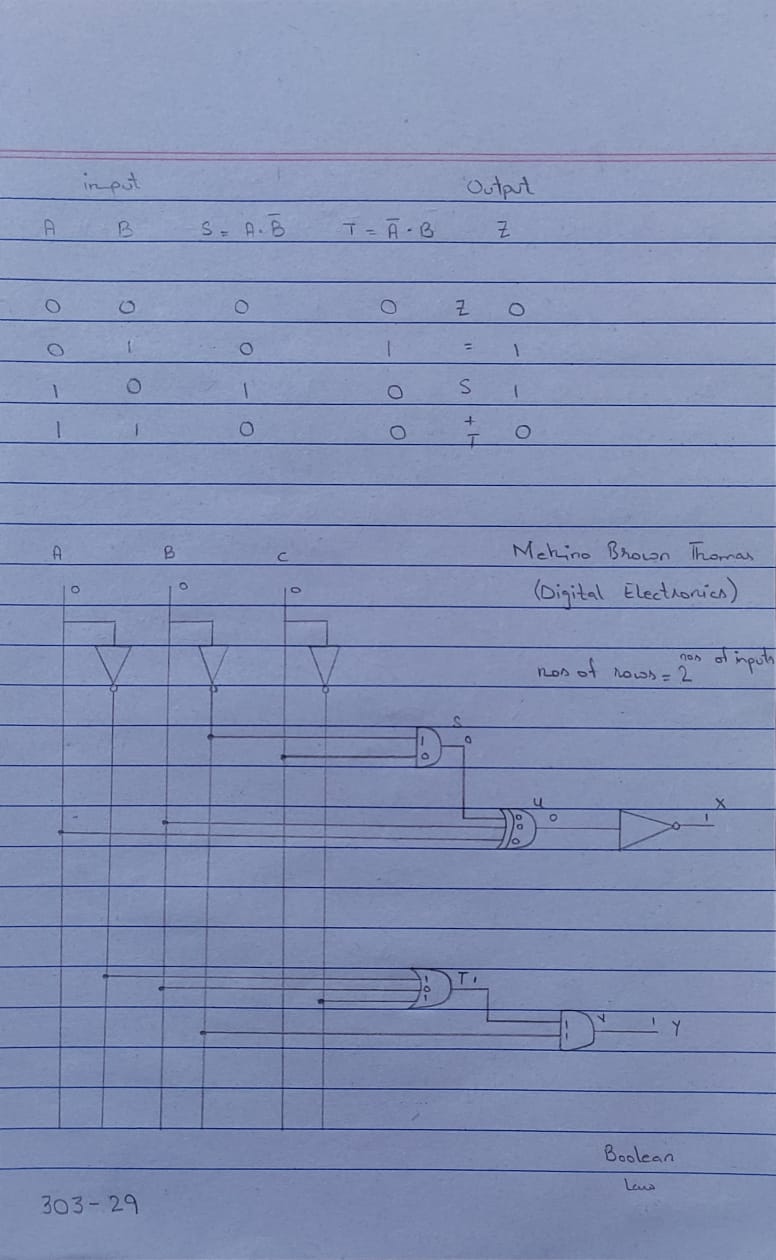 input Output
A B S = A.B̅ T = A̅.B Z
0 0 0 0 Z 0
0 1 0 1 = 1
1 0 1 0 S 1
1 1 0 0 + T 0
A B C Mekino Brown Thomas
0 0 0 (Digital Electronics)
nos of rows = 2^nos of inputs
S
1 0
0
U X
0 0 0 0 1
T 1
1 0 1
V
1 1 1 Y
Boolean
Law
303-29